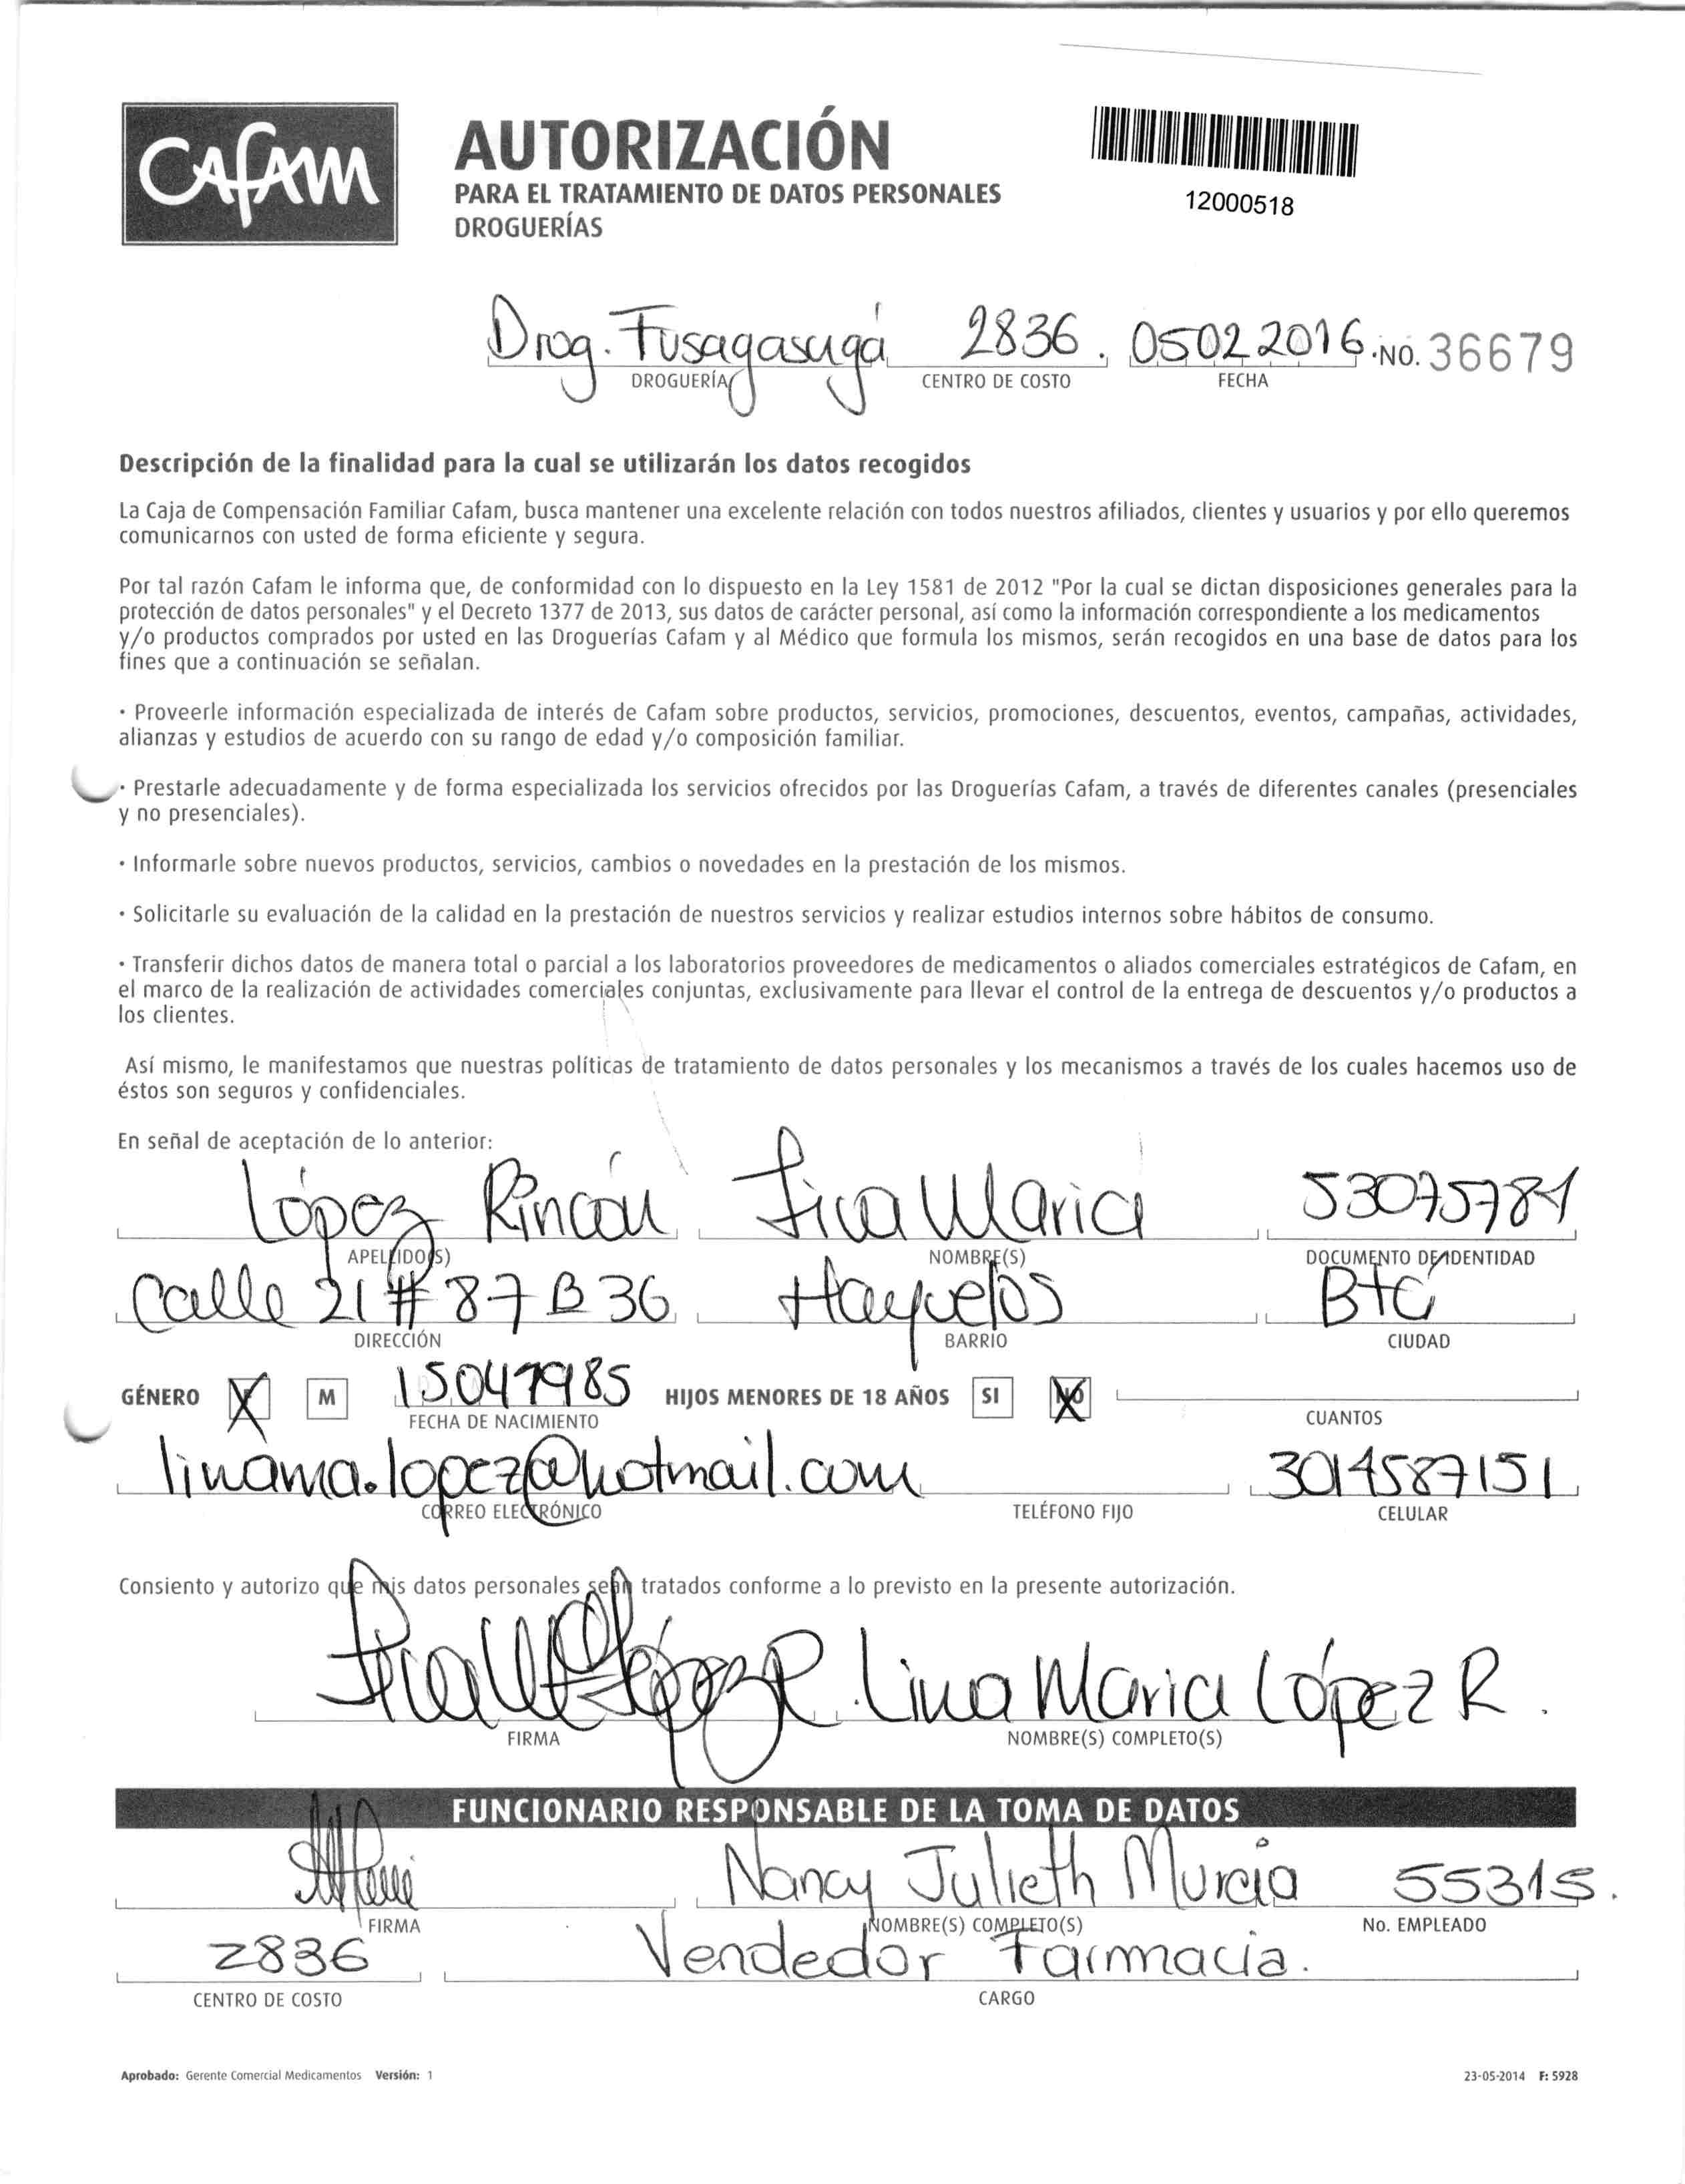 CAFAM
AUTORIZACIÓN
PARA EL TRATAMIENTO DE DATOS PERSONALES
DROGUERÍAS
12000518
Drog. Fusagasugá 2836. 05022016. No. 36679
DROGUERÍA CENTRO DE COSTO FECHA
Descripción de la finalidad para la cual se utilizarán los datos recogidos
La Caja de Compensación Familiar Cafam, busca mantener una excelente relación con todos nuestros afiliados, clientes y usuarios y por ello queremos
comunicarnos con usted de forma eficiente y segura.
Por tal razón Cafam le informa que, de conformidad con lo dispuesto en la Ley 1581 de 2012 "Por la cual se dictan disposiciones generales para la
protección de datos personales" y el Decreto 1377 de 2013, sus datos de carácter personal, así como la información correspondiente a los medicamentos
y/o productos comprados por usted en las Droguerías Cafam y al Médico que formula los mismos, serán recogidos en una base de datos para los
fines que a continuación se señalan.
· Proveerle información especializada de interés de Cafam sobre productos, servicios, promociones, descuentos, eventos, campañas, actividades,
alianzas y estudios de acuerdo con su rango de edad y/o composición familiar.
· Prestarle adecuadamente y de forma especializada los servicios ofrecidos por las Droguerías Cafam, a través de diferentes canales (presenciales
y no presenciales).
· Informarle sobre nuevos productos, servicios, cambios o novedades en la prestación de los mismos.
· Solicitarle su evaluación de la calidad en la prestación de nuestros servicios y realizar estudios internos sobre hábitos de consumo.
· Transferir dichos datos de manera total o parcial a los laboratorios proveedores de medicamentos o aliados comerciales estratégicos de Cafam, en
el marco de la realización de actividades comerciales conjuntas, exclusivamente para llevar el control de la entrega de descuentos y/o productos a
los clientes.
Así mismo, le manifestamos que nuestras políticas de tratamiento de datos personales y los mecanismos a través de los cuales hacemos uso de
éstos son seguros y confidenciales.
En señal de aceptación de lo anterior:
López Rincón Lina Maria 53075781
APELLIDO(S) NOMBRE(S) DOCUMENTO DE IDENTIDAD
Calle 21 # 87 B 36 Hayuelos BTá
DIRECCIÓN BARRIO CIUDAD
GÉNERO X M 15041985 HIJOS MENORES DE 18 AÑOS SI NO
FECHA DE NACIMIENTO CUANTOS
linama.lopez@hotmail.com 3014587151
CORREO ELECTRÓNICO TELÉFONO FIJO CELULAR
Consiento y autorizo que mis datos personales sean tratados conforme a lo previsto en la presente autorización.
Lina M López R. Lina Maria López R.
FIRMA NOMBRE(S) COMPLETO(S)
FUNCIONARIO RESPONSABLE DE LA TOMA DE DATOS
Nancy Julieth Murcia 55315.
FIRMA NOMBRE(S) COMPLETO(S) No. EMPLEADO
2836 Vendedor Farmacia.
CENTRO DE COSTO CARGO
Aprobado: Gerente Comercial Medicamentos Versión: 1 23-05-2014 F: 5928